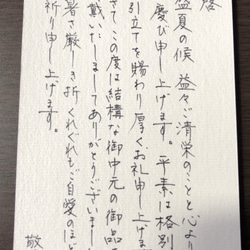 啓
盛夏の候 益々ご清栄のことと心より
慶び申し上げます。平素は格別
引立てを賜わり厚くお礼申し上げま
さて この度は結構な御中元の御品
戴いたしましてありがとうございまし
暑さ厳しき折 くれぐれもご自愛のほど
祈り申し上げます。
敬